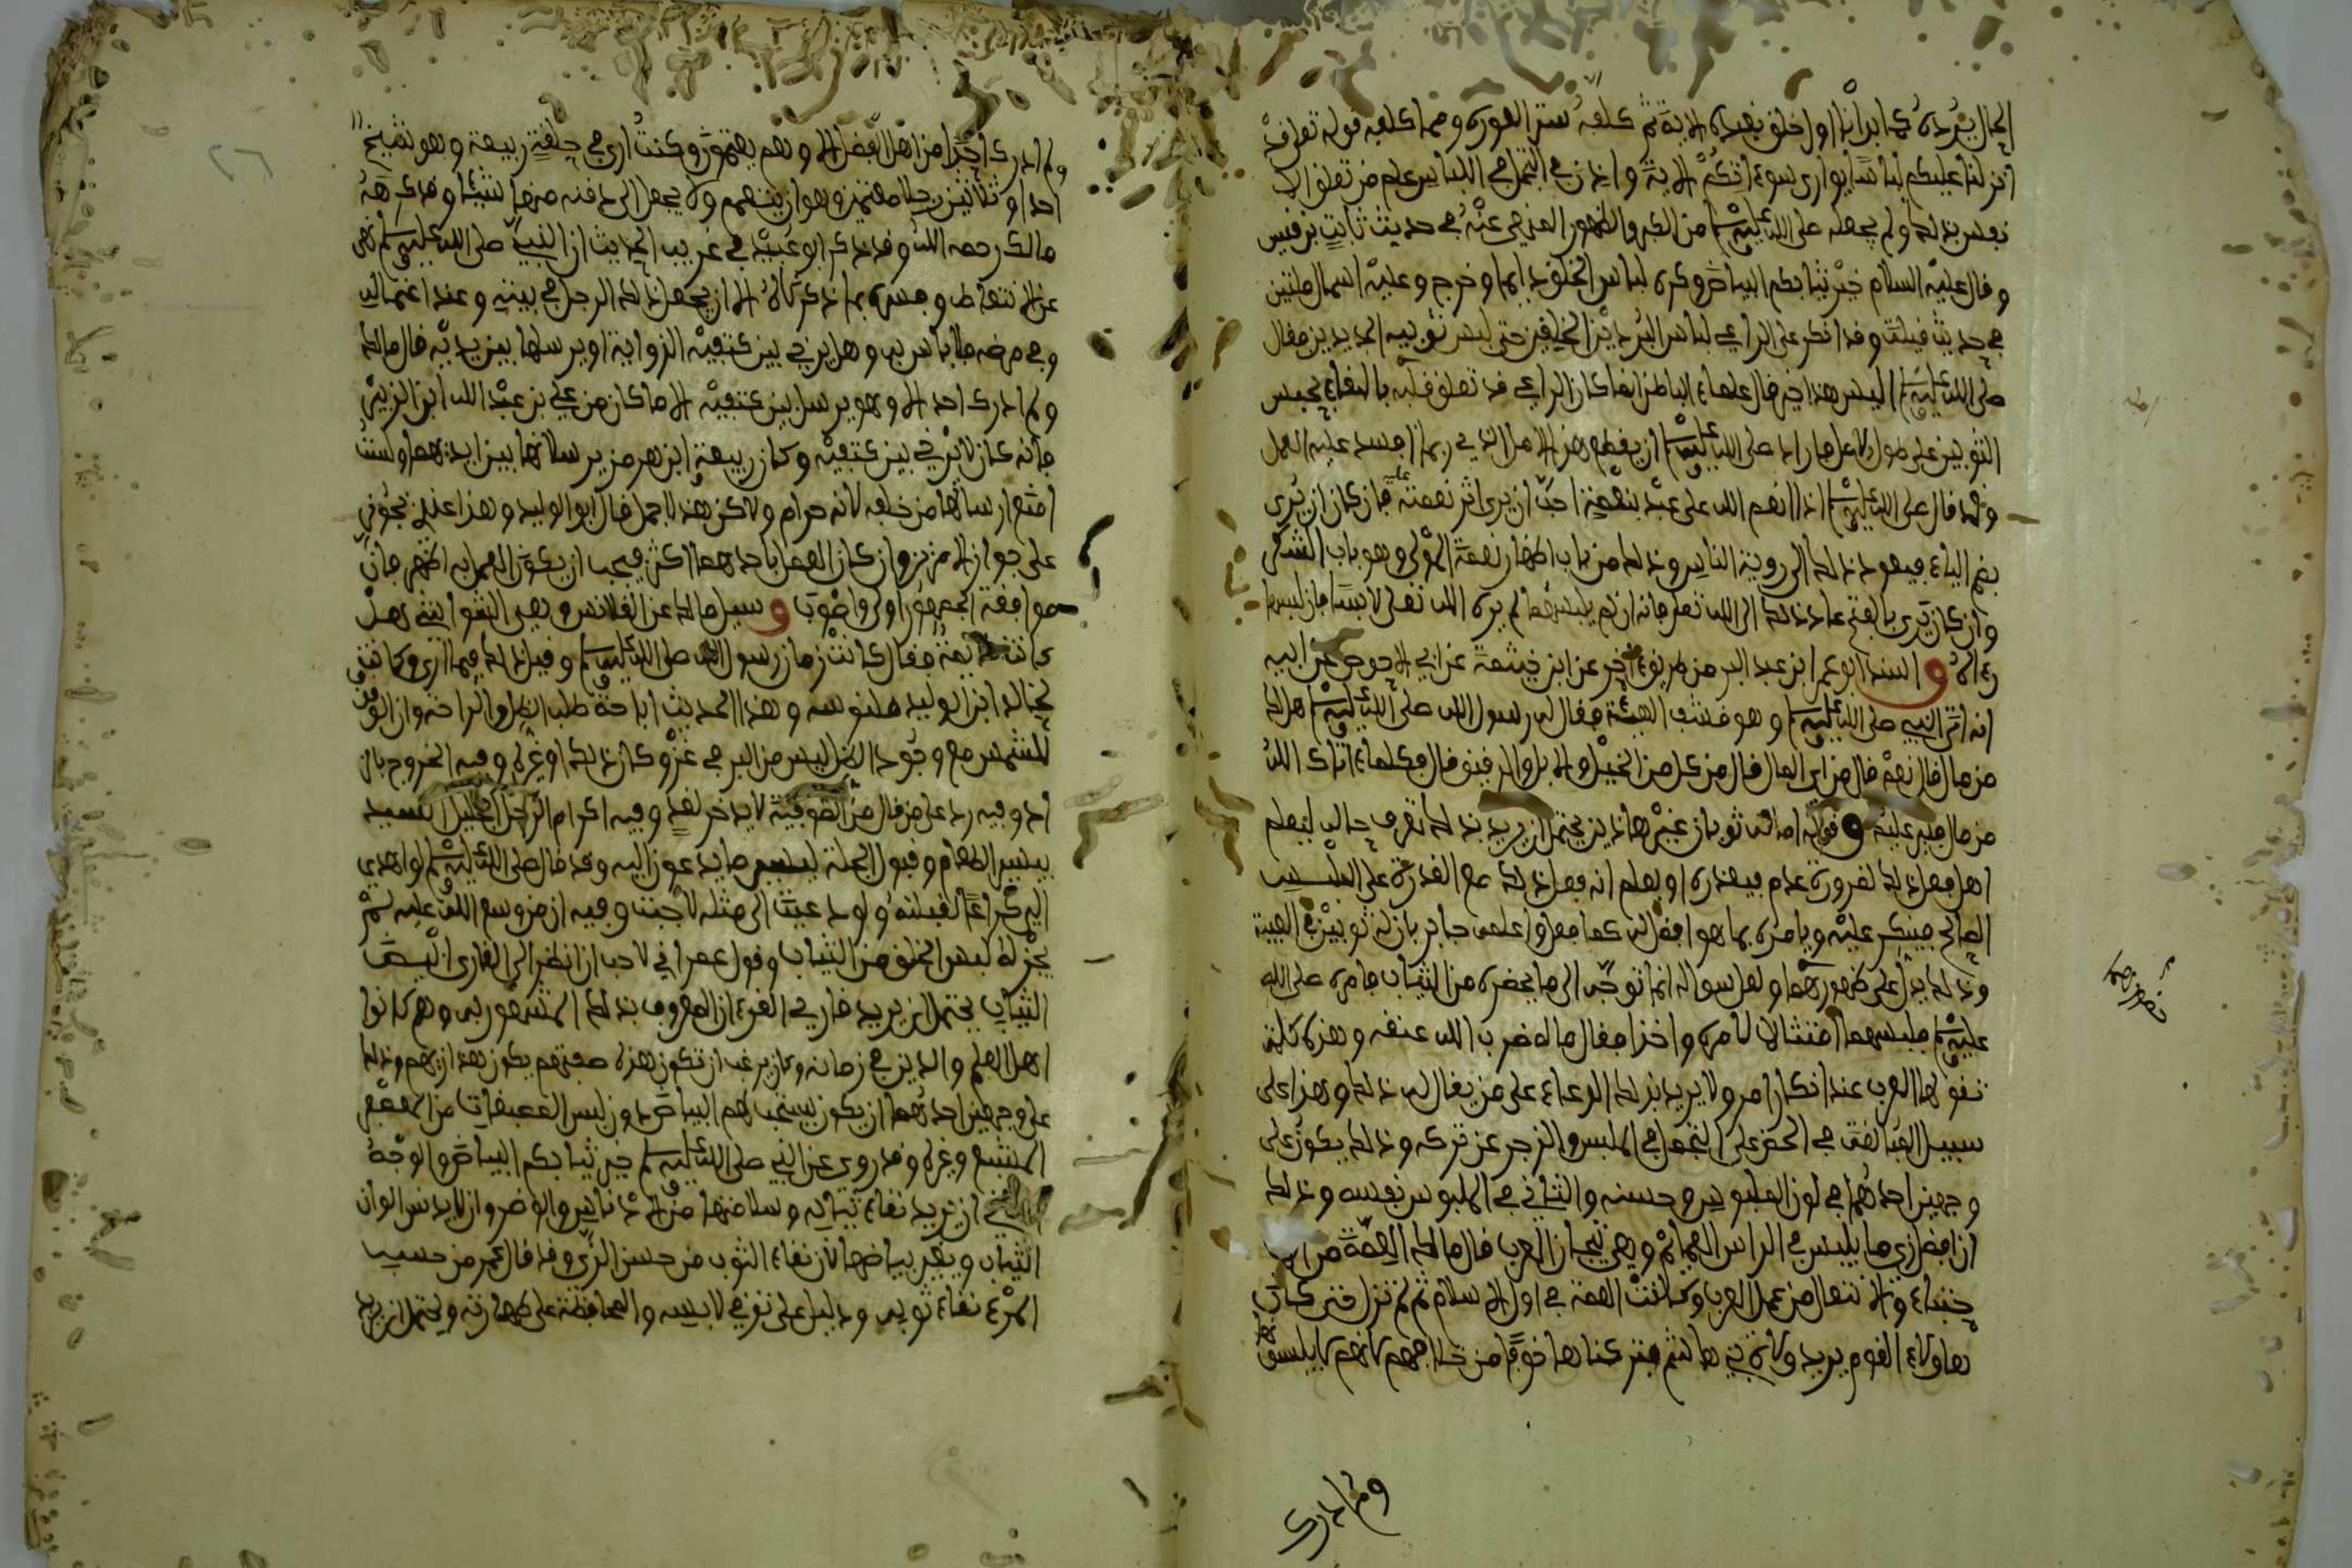 الحال يرده كما بدأنا أول خلق نعيده الآية ثم كلفه ستر العورة ومما كلفه قوله تعالى قد
أنزلنا عليكم لباسا يواري سوءاتكم الآية وأذن في التجمل في اللباس علم من تعلق ال
نفس بذلك ولم يجعله صلى الله عليه وسلم من الكبر والظهور المنهي عنه في حديث ثابت بن قيس
وقال عليه السلام خير ثيابكم البياض وكره لباس الخلق دايما وخرج وعليه اسمال مليتين
في حديث قيلة وقد انكر على الراعي لباس البردين الخلقين حتى لبس ثوبيه الجديدين فقال
صلى الله عليه وسلم اليس هذا خير قال علماء الباطن انما كان الراعي قد تعلق قلبه بالبقاء بحبس
الثوبين على طول الامل فاراد صلى الله عليه وسلم ان يقطع هذا الامل الذي ربما افسد عليه العمل
وقد قال صلى الله عليه وسلم اذا انعم الله على عبد بنعمة احب ان يرى اثر نعمته عليه فان كان ان يرى
بضم الياء فيعود ذلك الى روية الناس وذلك من باب اظهار نعمة المولى وهو باب الشكر
وان كان يرى بالفتح عاد ذلك الى الله تعلى فانه ان لم يلبسهما لم يره الله تعلى لابسا فان لبسها
رءاه واسند ابو عمر ابن عبد البر من طريق ءاخر عن ابن خيثمة عن ابي الاحوص عن ابيه
انه اتى النبي صلى الله عليه وسلم وهو قشف الهيئة فقال له رسول الله صلى الله عليه وسلم هل لك
من مال قال نعم قال من اي المال قال من كل من الخيل والابل والرقيق قال فكلما ءاتاك الله
من مال فلير عليك وقوله اما له ثوبان غير هاذين يحتمل ان يريد بذلك تعرف حاله ليعلم
اهل فعل ذلك لضرورة عدم فيعذره او يعلم انه فعل ذلك مع القدرة على الملبس
الصالح فينكر عليه ويامره بما هو افضل له كما فعل واعلمه جابر بان له ثوبين في العيبة
وذلك يدل على ظهورهما ولعل سواله انما توجه الى ما يحضره من الثياب فامره صلى الله
عليه وسلم فلبسهما امتثالا لامره واخذا فقال ماله ضرب الله عنقه وهذه كلمة
تقولها العرب عند انكار امر ولا يريد بذلك الدعاء على من يقال له ذلك وهذا على
سبيل المبالغة في الحض على التجمل في الملبس والزجر عن تركه وذلك يكون على
وجهين احدهما في لون الملبوس وحسنه والثاني في الملبوس نفسه وذلك
ان افضل زي ما يلبس في الراس العمائم وهي تيجان العرب قال مالك العمة من
والانتعال من عمل العرب وكانت العمة في اول الاسلام ثم لم تزل حتى كان
هاولاء القوم يريد ولاة بني هاشم فتركناها خوفا من خلافهم لانهم لا يلبسونها
ولم ادرك
ولم ادرك احدا من اهل الفضل الا وهم يعتمون وكنت ارى في حلقة ربيعة وهو شيخ
احدا وثلاثين رجلا معتمين وهو ازينهم ولا يجعل الى ذقنه منها شيئا وقد كرهه
مالك رحمه الله وقد ذكر ابو عبيد في غريب الحديث ان النبي صلى الله عليه وسلم نهى
عن الاقتعاط وفسره بما ذكرناه الا ان يجعل ذلك الرجل في بيته وعند اغتساله
وفي مرضه فلا باس به وهل يرخي بين كتفيه الذوابة او يرسلها بين يديه قال مالك
ولم ادرك احدا الا وهو يرسل بين كتفيه الا ما كان من علي بن عبد الله ابن الزبير
فانه كان لا يرخي بين كتفيه وكان ربيعة ابن هرمز يرسلانها بين ايديهما ولست
امنع ارسالها من خلفه لانه حرام ولاكن هذا اجمل قال ابو الوليد وهذا عندي نحوي
على جواز الامرين وان كان العمل باحدهما اكثر فيجب ان يكون العمل به اظهر فان
موافقة الجمهور اولى واصوب وسيل مالك عن القلانس وهي الشواشي هل
كانت قديمة فقال كانت زمان رسول الله صلى الله عليه وسلم وقبل ذلك فيما ارى وكانت
لخالد ابن الوليد قلنسوة وهذا الحديث اباحة طلب الظل والراحة وان الوقوف
للشمس مع وجود الظل ليس من البر في غزو كان ذلك او غيره وفيه الخروج بالز
اد وفيه رد على من قال من الصوفية لا يدخر لغد وفيه اكرام الرجل الجليل السيد
بيسير الطعام وقبول الجلة ليسير ما يدعون اليه وقد قال صلى الله عليه وسلم لو اهدي
الي كراع لقبلته ولو دعيت الى مثله لاجبت وفيه ان من وسع الله عليه لم
يجز له لبس الخلق من الثياب وقول عمر اني لاحب ان انظر الى القارئ ابيض
الثياب يحتمل ان يريد قارئ القرءان المعروف بذلك المشهور به وهم كانوا
اهل العلم والدين في زمانه وكان يرغب ان تكون هذه صفتهم يكون هذا زيهم وذلك
على وجهين احدهما ان يكون يستحب لهم البياض دون لبس المصبغات من المعصفر
المشبع وغيره وقد روي عن النبي صلى الله عليه وسلم خير ثيابكم البياض والوجه
الثاني ان يريد نقاء ثيابه وسلامتها من الادناس والوضر وان لا يدنس الوان
الثياب ويغير بياضها لان نقاء الثوب من حسن الزي وقد قال عمر من حسب
المرء نقاء ثوبه ودليل على تنزهي لابسه والمحافظة على طهارته ويحتمل ان يريد